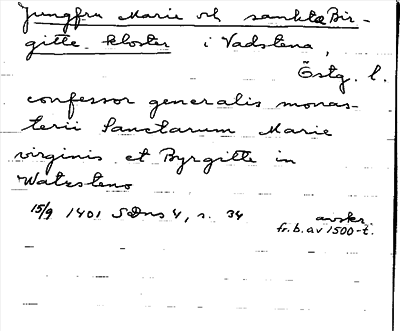 Jungfru Marie och sankta Bir-
gitte kloster i Vadstena,
Östg. l.
confessor generalis monas-
terii Sanctarum Marie
virginis et Byrgitte in
Watzstens
15/9 1401 SDns 4, s. 34 avskr.
fr. b. av 1500-t.